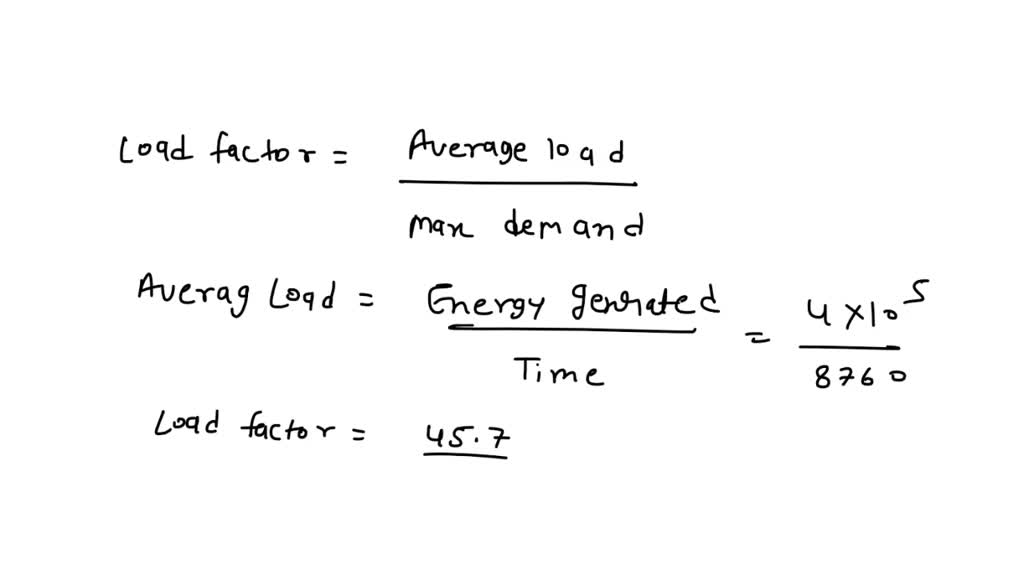 Load factor = Average load
max demand
Averag Load = Energy genrated / Time = 4 × 10^5 / 8760
Load factor = 45.7